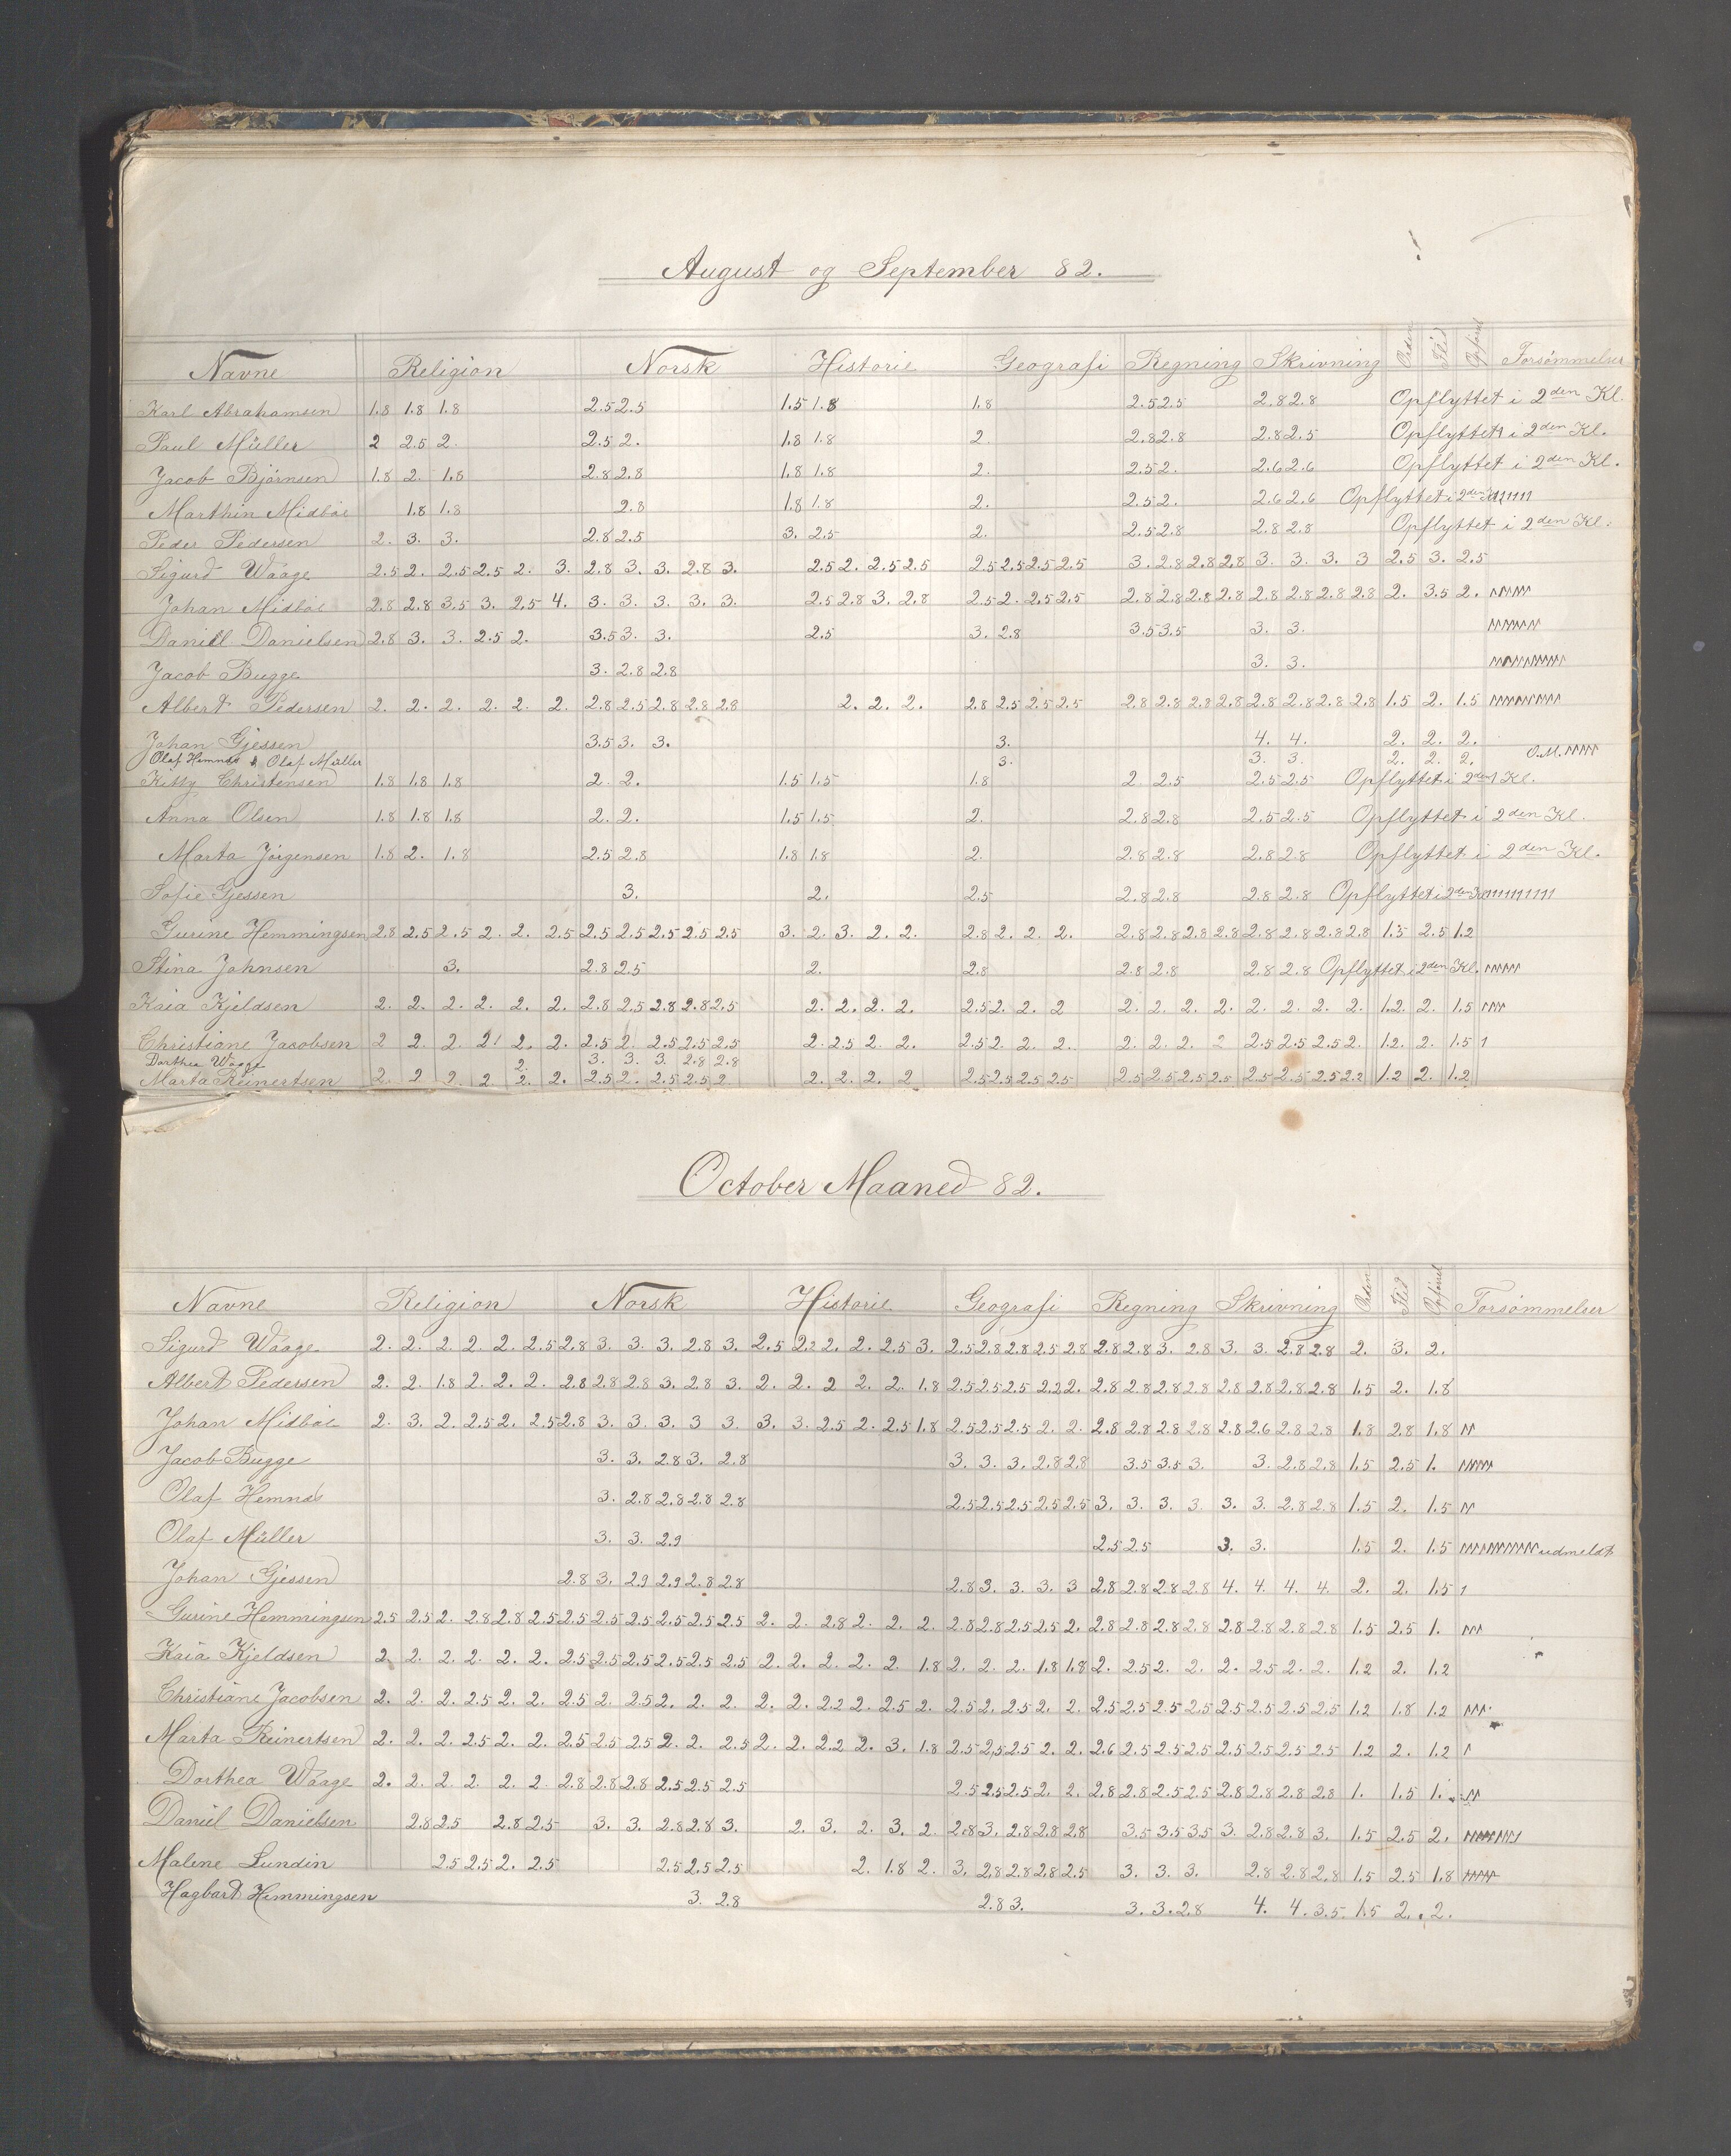 August og September 82.
Navne Religion Norsk Historie Geografi Regning Skrivning Orden Flid Opførsel Forsømmelser
Karl Abrahamsen 1.8 1.8 1.8 2.5 2.5 1.5 1.8 1.8 2.5 2.5 2.8 2.8 Opflyttet i 2den Kl.
Paul Müller 2 2.5 2. 2.5 2. 1.8 1.8 2. 2.8 2.8 2.8 2.5 Opflyttet i 2den Kl.
Jacob Bjørnsen 1.8 2. 1.8 2.8 2.8 1.8 1.8 2. 2.5 2. 2.6 2.6 Opflyttet i 2den Kl.
Marthin Midböe 1.8 1.8 2.8 1.8 1.8 2. 2.5 2. 2.6 2.6 Opflyttet i 2den
Peder Pedersen 2. 3. 3. 2.8 2.5 3. 2.5 2. 2.5 2.8 2.8 2.8 Opflyttet i 2den Kl.
Sigurd Waage 2.5 2. 2.5 2.5 2. 3. 2.8 3. 3. 2.8 3. 2.5 2. 2.5 2.5 2.5 2.5 2.5 2.5 3. 2.8 2.8 2.8 3. 3. 3. 3 2.5 3. 2.5
Johan Midböe 2.8 2.8 3.5 3. 2.5 4. 3. 3. 3. 3. 3. 2.5 2.8 3. 2.8 2.5 2. 2.5 2.5 2.8 2.8 2.8 2.8 2.8 2.8 2.8 2.8 2. 3.5 2.
Daniel Danielsen 2.8 3. 3. 2.5 2. 3.5 3. 3. 2.5 3. 2.8 3.5 3.5 3. 3.
Jacob Bugge 3. 2.8 2.8 3. 3.
Albert Pedersen 2. 2. 2. 2. 2. 2. 2.8 2.5 2.8 2.8 2.8 2. 2. 2. 2.8 2.5 2.5 2.5 2.8 2.8 2.8 2.8 2.8 2.8 2.8 2.8 1.5 2. 1.5
Johan Gjessen 3.5 3. 3. 3. 4. 4. 2. 2. 2.
Olaf Hemnæs & Olaf Müller 3. 3. 3. 2. 2. 2. O.M.
Kitty Christensen 1.8 1.8 1.8 2. 2. 1.5 1.5 1.8 2 2.5 2.5 2.5 Opflyttet i 2den Kl.
Anna Olsen 1.8 1.8 1.8 2. 2. 1.5 1.5 2. 2.8 2.8 2.5 2.5 Opflyttet i 2den Kl.
Marta Jörgensen 1.8 2. 1.8 2.5 2.8 1.8 1.8 2. 2.8 2.8 2.8 2.8 Opflyttet i 2den Kl.
Sofie Gjessen 3. 2. 2.5 2.8 2.8 2.8 2.8 Opflyttet i 2den Kl
Gurine Hemmingsen 2.8 2.5 2.5 2. 2. 2.5 2.5 2.5 2.5 2.5 2.5 3. 2. 3. 2. 2. 2.8 2. 2. 2. 2.8 2.8 2.8 2.8 2.8 2.8 2.8 2.8 1.5 2.5 1.2
Stina Johnsen 3. 2.8 2.5 2. 2.8 2.8 2.8 2.8 2.8 Opflyttet i 2den Kl.
Kaia Kjeldsen 2. 2. 2. 2. 2. 2. 2.8 2.5 2.8 2.8 2.5 2. 2. 2. 2. 2.5 2. 2. 2 2. 2. 2. 2. 2. 2. 2. 2. 1.2. 2. 1.5
Christiane Jacobsen 2 2. 2. 2. 2. 2. 2.5 2. 2.5 2.5 2.5 2. 2.5 2. 2. 2.5 2. 2. 2. 2. 2. 2. 2 2.5 2.5 2.5 2. 1.2. 2. 1.5
Dorthea Waage 2. 3. 3. 3. 2.8 2.8
Marta Reinertsen 2. 2 2. 2 2. 2. 2.5 2. 2.5 2.5 2 2. 2. 2. 2 2.5 2.5 2.5 2.5 2.5 2.5 2.5 2.5 2.5 2.5 2.5 2.2 1.2 2. 1.2
October Maaned 82.
Navne Religion Norsk Historie Geografi Regning Skrivning Orden Flid Opførsel Forsømmelser
Sigurd Waage 2. 2. 2. 2. 2. 2.5 2.8 3. 3. 3. 2.8 3. 2.5 2.2 2. 2. 2.5 3. 2.5 2.8 2.8 2.5 2.8 2.8 2.8 3. 2.8 3. 3. 2.8 2.8 2. 3. 2.
Albert Pedersen 2. 2. 1.8 2. 2. 2. 2.8 2.8 2.8 3. 2.8 3. 2. 2. 2 2. 2. 1.8 2.5 2.5 2.5 2.2 2. 2.8 2.8 2.8 2.8 2.8 2.8 2.8 2.8 1.5 2. 1.8
Johan Midböe 2. 3. 2. 2.5 2. 2.5 2.8 3. 3. 3. 3 3. 3. 3. 2.5 2. 2.5 1.8 2.5 2.5 2.5 2. 2. 2.8 2.8 2.8 2.8 2.8 2.6 2.8 2.8 1.8 2.8 1.8
Jacob Bugge 3. 3. 2.8 3. 2.8 3. 3. 3. 2.8 2.8 3.5 3.5 3. 3. 2.8 2.8 1.5 2.5 1.
Olaf Hemnæs 3. 2.8 2.8 2.8 2.8 2.5 2.5 2.5 2.5 2.5 3. 3. 3. 3. 3. 3. 2.8 2.8 1.5 2. 1.5
Olaf Müller 3. 3. 2.9 2.5 2.5 3. 3. 1.5 2. 1.5 udmeldt
Johan Gjessen 2.8 3. 2.9 2.9 2.8 2.8 2.8 3. 3. 3. 3 2.8 2.8 2.8 2.8 4. 4. 4. 4. 2. 2. 1.5
Gurine Hemmingsen 2.5 2.5 2. 2.8 2.8 2.5 2.5 2.5 2.5 2.5 2.5 2.5 2. 2. 2.8 2. 2. 2. 2.8 2.8 2.5 2.5 2. 2.8 2.8 2.8 2.8 2.8 2.8 2.8 2.8 1.5 2.5 1.
Kaia Kjeldsen 2. 2. 2. 2. 2. 2. 2.5 2.5 2.5 2.5 2.5 2.5 2. 2. 2. 2. 2. 1.8 2. 2. 2. 1.8 1.8 2. 2.5 2. 2. 2. 2.5 2. 2. 1.2 2. 1.2
Christiane Jacobsen 2. 2. 2. 2.5 2. 2. 2.5 2. 2.5 2. 2. 2. 2. 2. 2.2 2. 2.5 2. 2.5 2. 2.5 2. 2. 2.5 2.5 2.5 2.5 2.5 2.5 2.5 2.5 1.2 1.8 1.2
Marta Reinertsen 2. 2. 2. 2.5 2. 2. 2.5 2.5 2.5 2. 2. 2.5 2. 2. 2.2 2. 3. 1.8 2.5 2.5 2.5 2. 2. 2.6 2.5 2.5 2.5 2.5 2.5 2.5 2.5 1.2 2. 1.2
Dorthea Waage 2. 2. 2. 2. 2. 2. 2.8 2.8 2.8 2.5 2.5 2.5 2.5 2.5 2.5 2. 2. 2.8 2.8 2.5 2.5 2.8 2.8 2.8 2.8 1. 1.5 1.
Daniel Danielsen 2.8 2.5 2.8 2.5 3. 3. 2.8 2.8 3. 2. 3. 2. 3. 2. 2.8 3. 2.8 2.8 2.8 3.5 3.5 3.5 3. 2.8 2.8 3. 1.5 2.5 2.
Malene Lundin 2.5 2.5 2. 2.5 2.5 2.5 2.5 2. 1.8 2. 3. 2.8 2.8 2.8 2.5 3. 3. 3. 2.8 2.8 2.8 1.5 2.5 1.8
Hagbart Hemmingsen 3. 2.8 2.8 3. 3. 3. 2.8 4. 4. 3.5. 1.5 2. 2.